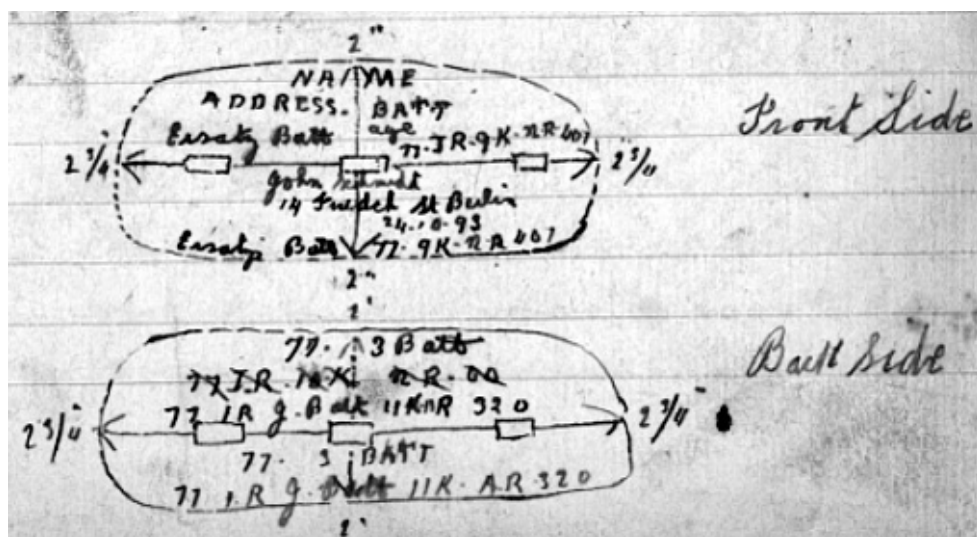 2"
NAME
ADDRESS. BATT
age
Ersatz Batt 77. I R. 9 K. NR 407
2 3/4 2 3/4
John Schmidt
14 Friedch St Berlin
24.10.93
Ersatz Batt 77. 9K. NR 407
2"
Front Side
2"
77. 3 Batt
77 I.R. 10 K NR.
77 I R J. Batt 11K NR 320
2 3/4" 2 3/4"
77. 3 BATT
77 I.R J. Batt 11K. AR. 320
2"
Back Side